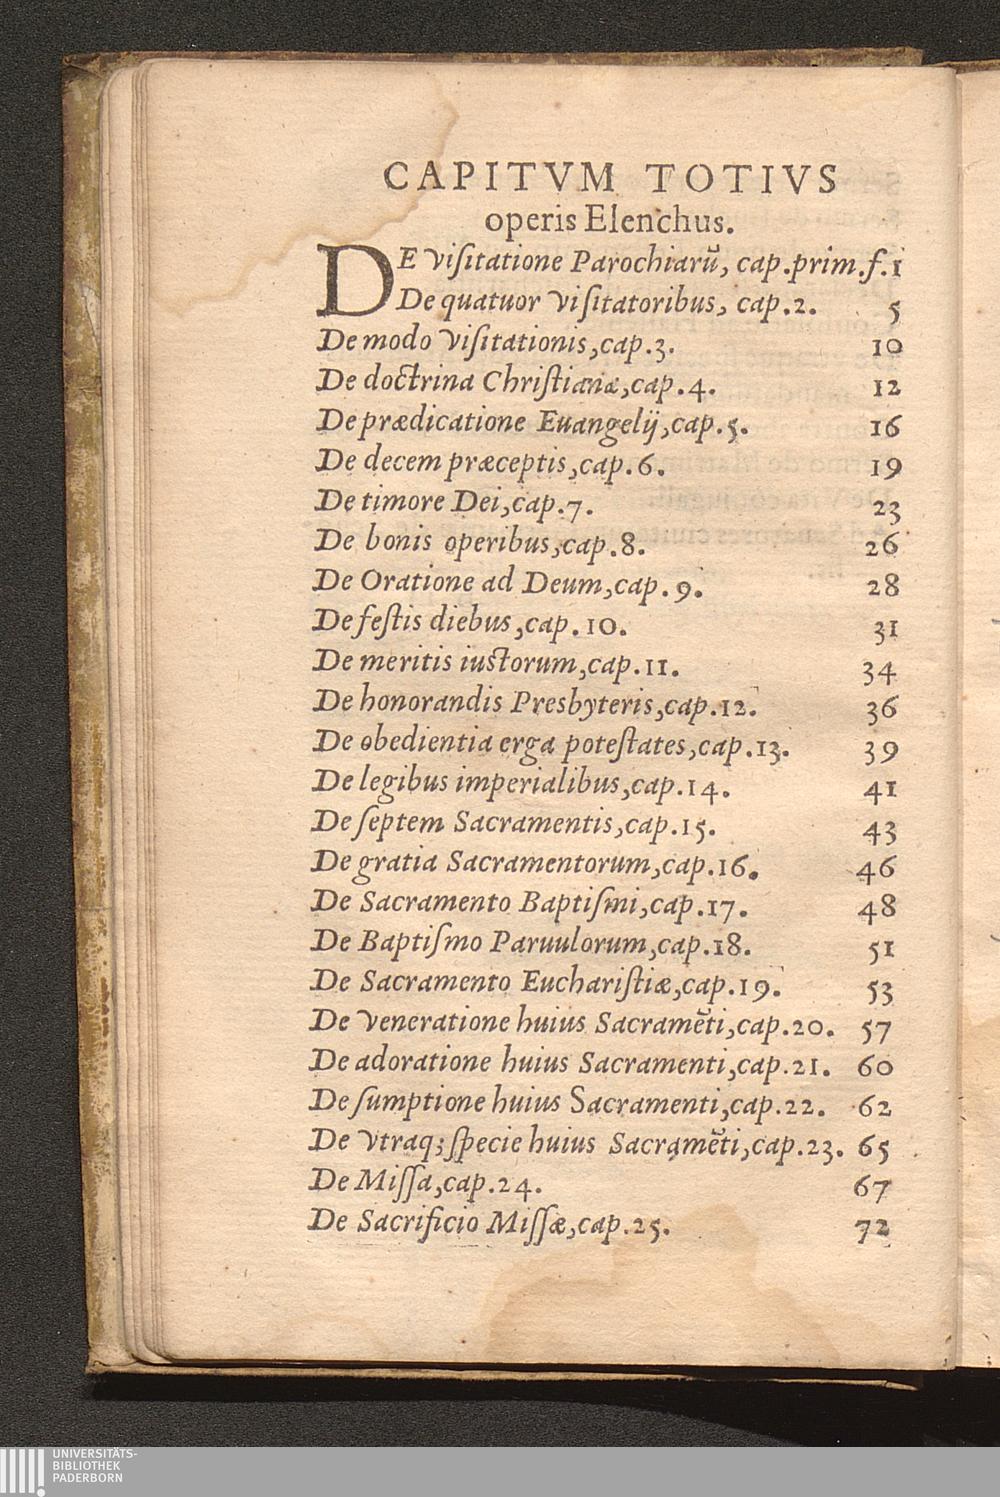 CAPITVM TOTIVS
operis Elenchus.
DE Viſitatione Parochiarū, cap.prim.f.1
De quatuor Viſitatoribus, cap.2. 5
De modo Viſitationis,cap.3. 10
De doctrina Chriſtianæ,cap.4. 12
De prædicatione Euangelij,cap.5. 16
De decem præceptis,cap.6. 19
De timore Dei,cap.7. 23
De bonis operibus,cap.8. 26
De Oratione ad Deum,cap.9. 28
De feſtis diebus,cap.10. 31
De meritis iustorum,cap.11. 34
De honorandis Presbyteris,cap.12. 36
De obedientia erga poteſtates,cap.13. 39
De legibus imperialibus,cap.14. 41
De ſeptem Sacramentis,cap.15. 43
De gratia Sacramentorum,cap.16. 46
De Sacramento Baptiſmi,cap.17. 48
De Baptiſmo Paruulorum,cap.18. 51
De Sacramento Euchariſtiæ,cap.19. 53
De Veneratione huius Sacramēti,cap.20. 57
De adoratione huius Sacramenti,cap.21. 60
De ſumptione huius Sacramenti,cap.22. 62
De Vtraq; ſpecie huius Sacramēti,cap.23. 65
De Miſſa,cap.24. 67
De Sacrificio Miſſæ,cap.25. 72
UNIVERSITÄTS-
BIBLIOTHEK
PADERBORN